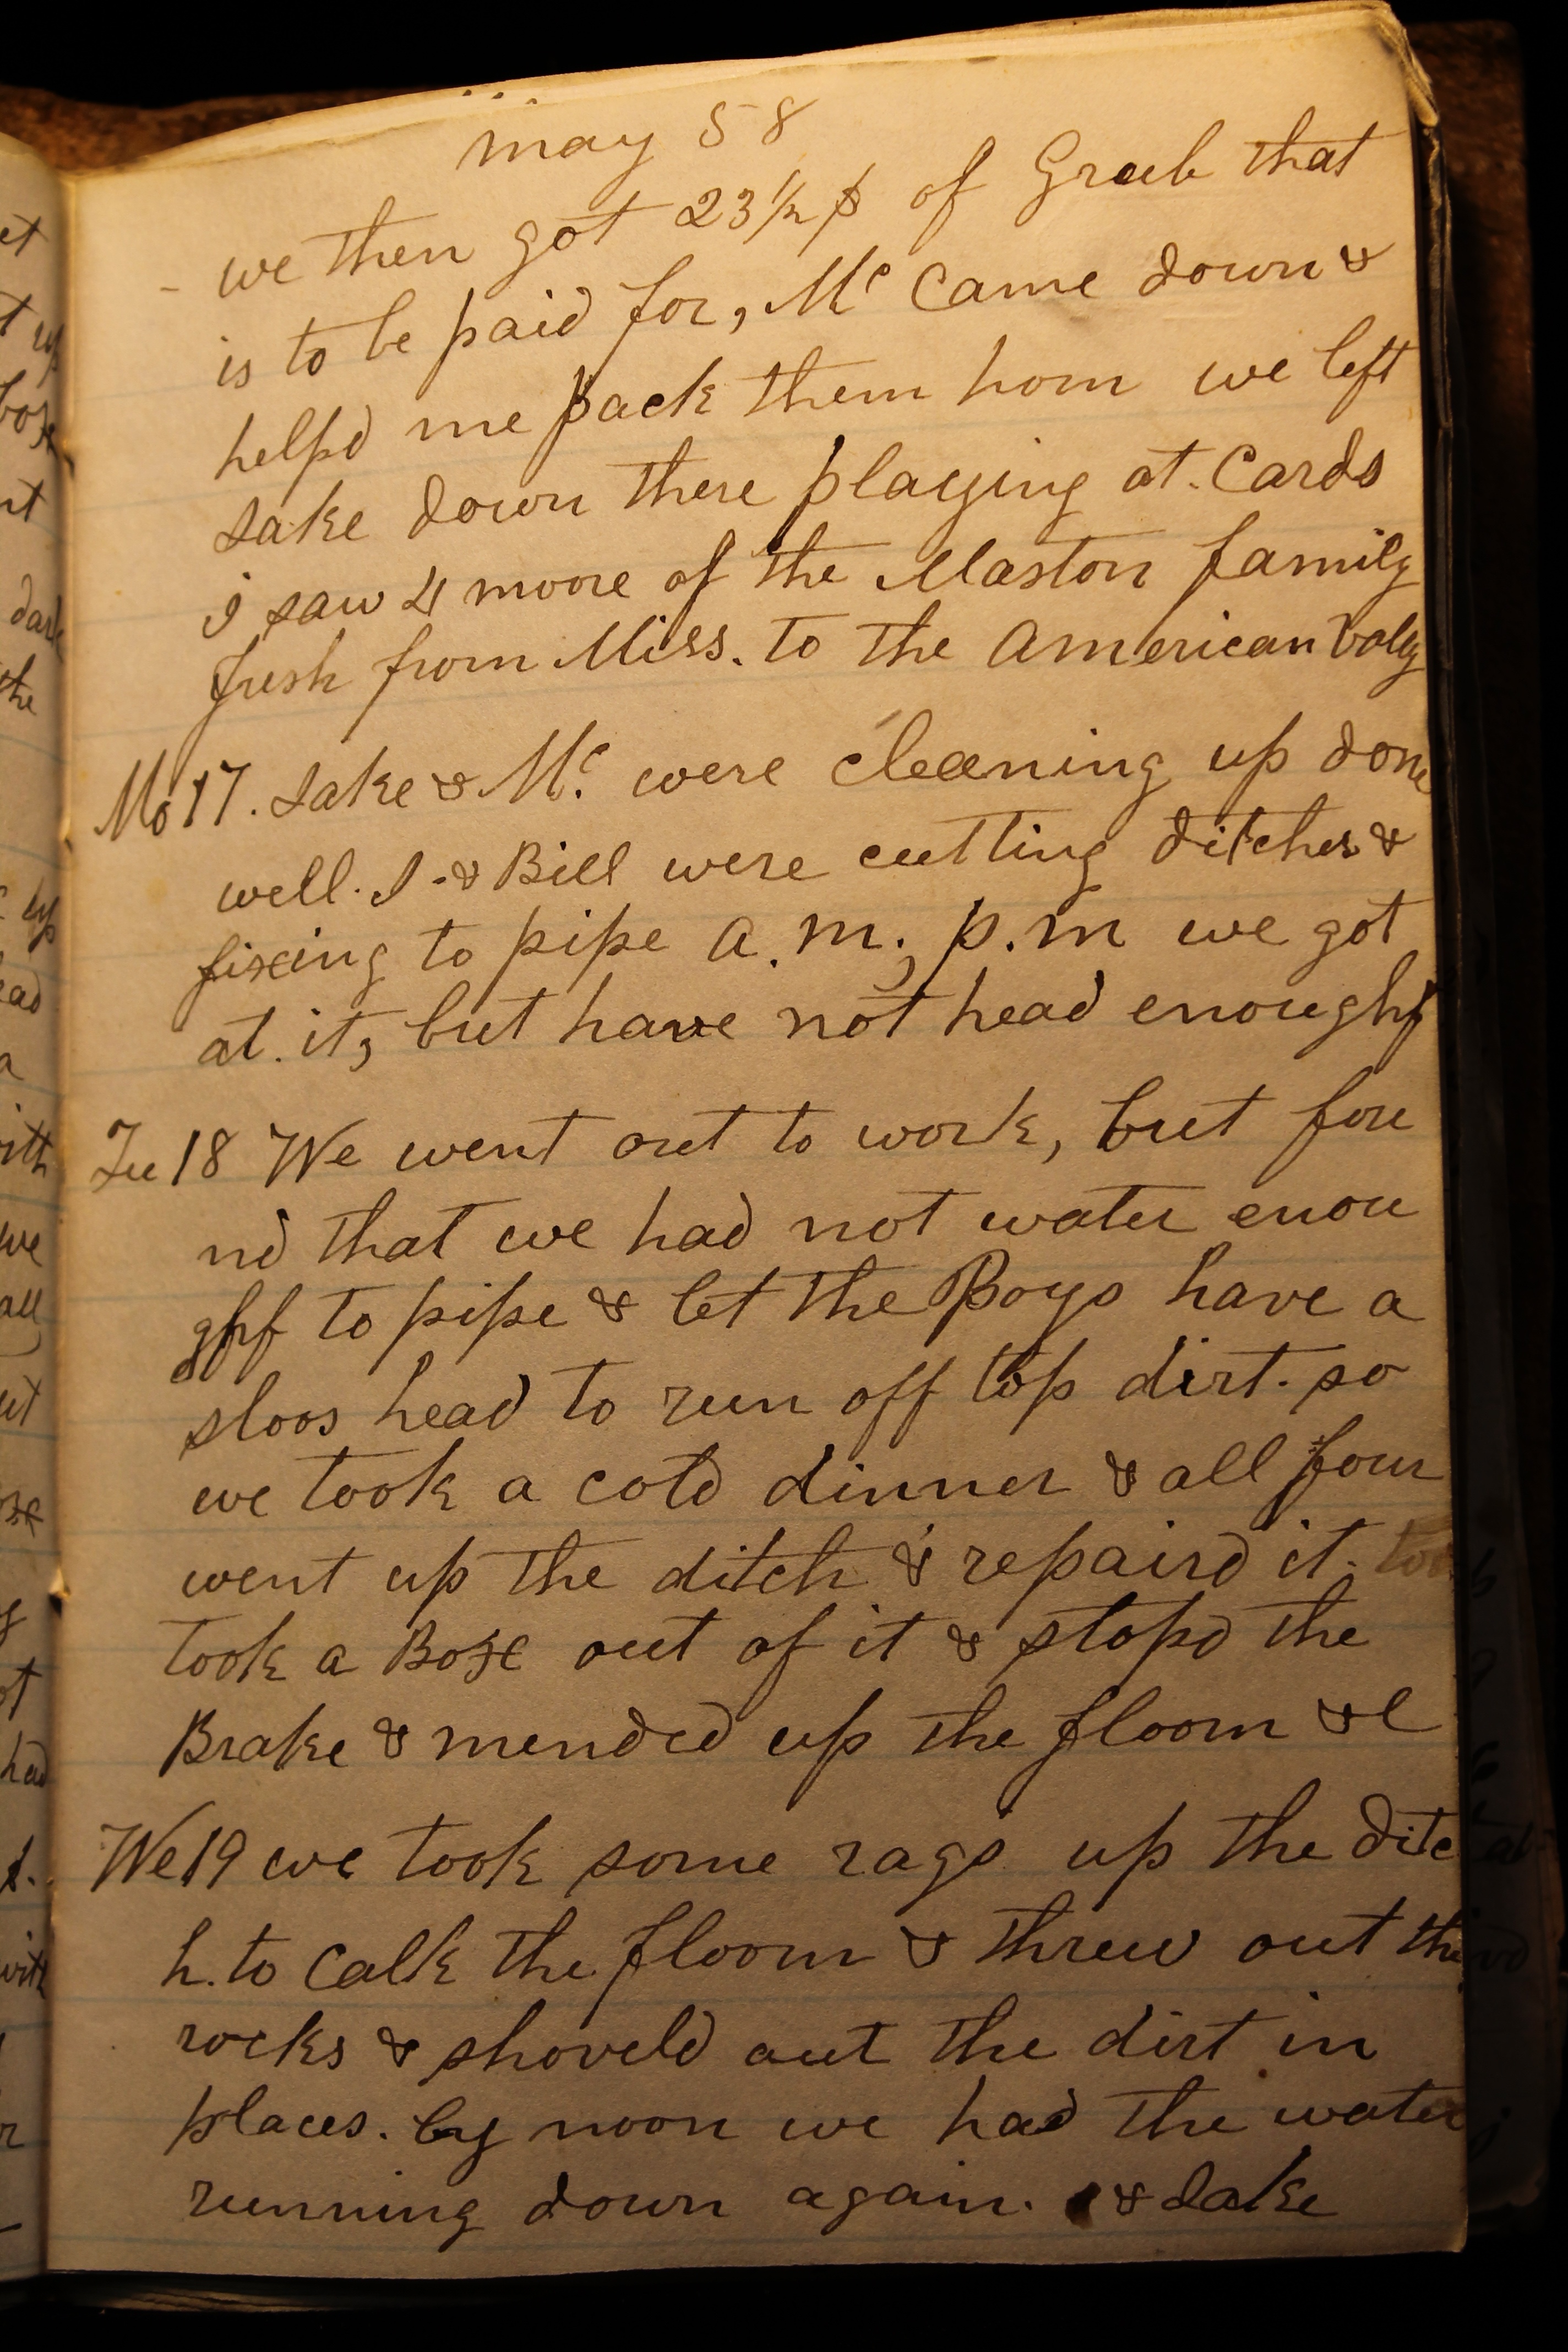 may 58
- we then got 23½ $ of Grub that
is to be paid for, Mc Came down &
helpd me pack them hom we left
Jake down there playing at. Cards
I saw 4 moore of the Maston family
fresh from Miss. to the American Valey
Mo 17. Jake & Mc. were cleaning up done
well. I - & Bill were cutting ditches &
fixing to pipe a.m; p.m we got
at. it, but have not head enoughf
Tu 18 We went out to work, but fou
nd that we had not water enou
ghf to pipe & let the Boys have a
sloos head to run off top dirt. so
we took a cold dinner & all four
went up the ditch & repaird it. too
took a Boxe out of it & stopd the
Brake & mended up the floom &c
We 19 we took some rags up the ditc
h. to Calk the floom & threw out the
rocks & shoveld out the dirt in
places. by noon we had the water
running down again. & Jake
et
t up
boxe
nt
dark
the
up
ead
a
with
we
all
ut
ot
had
with